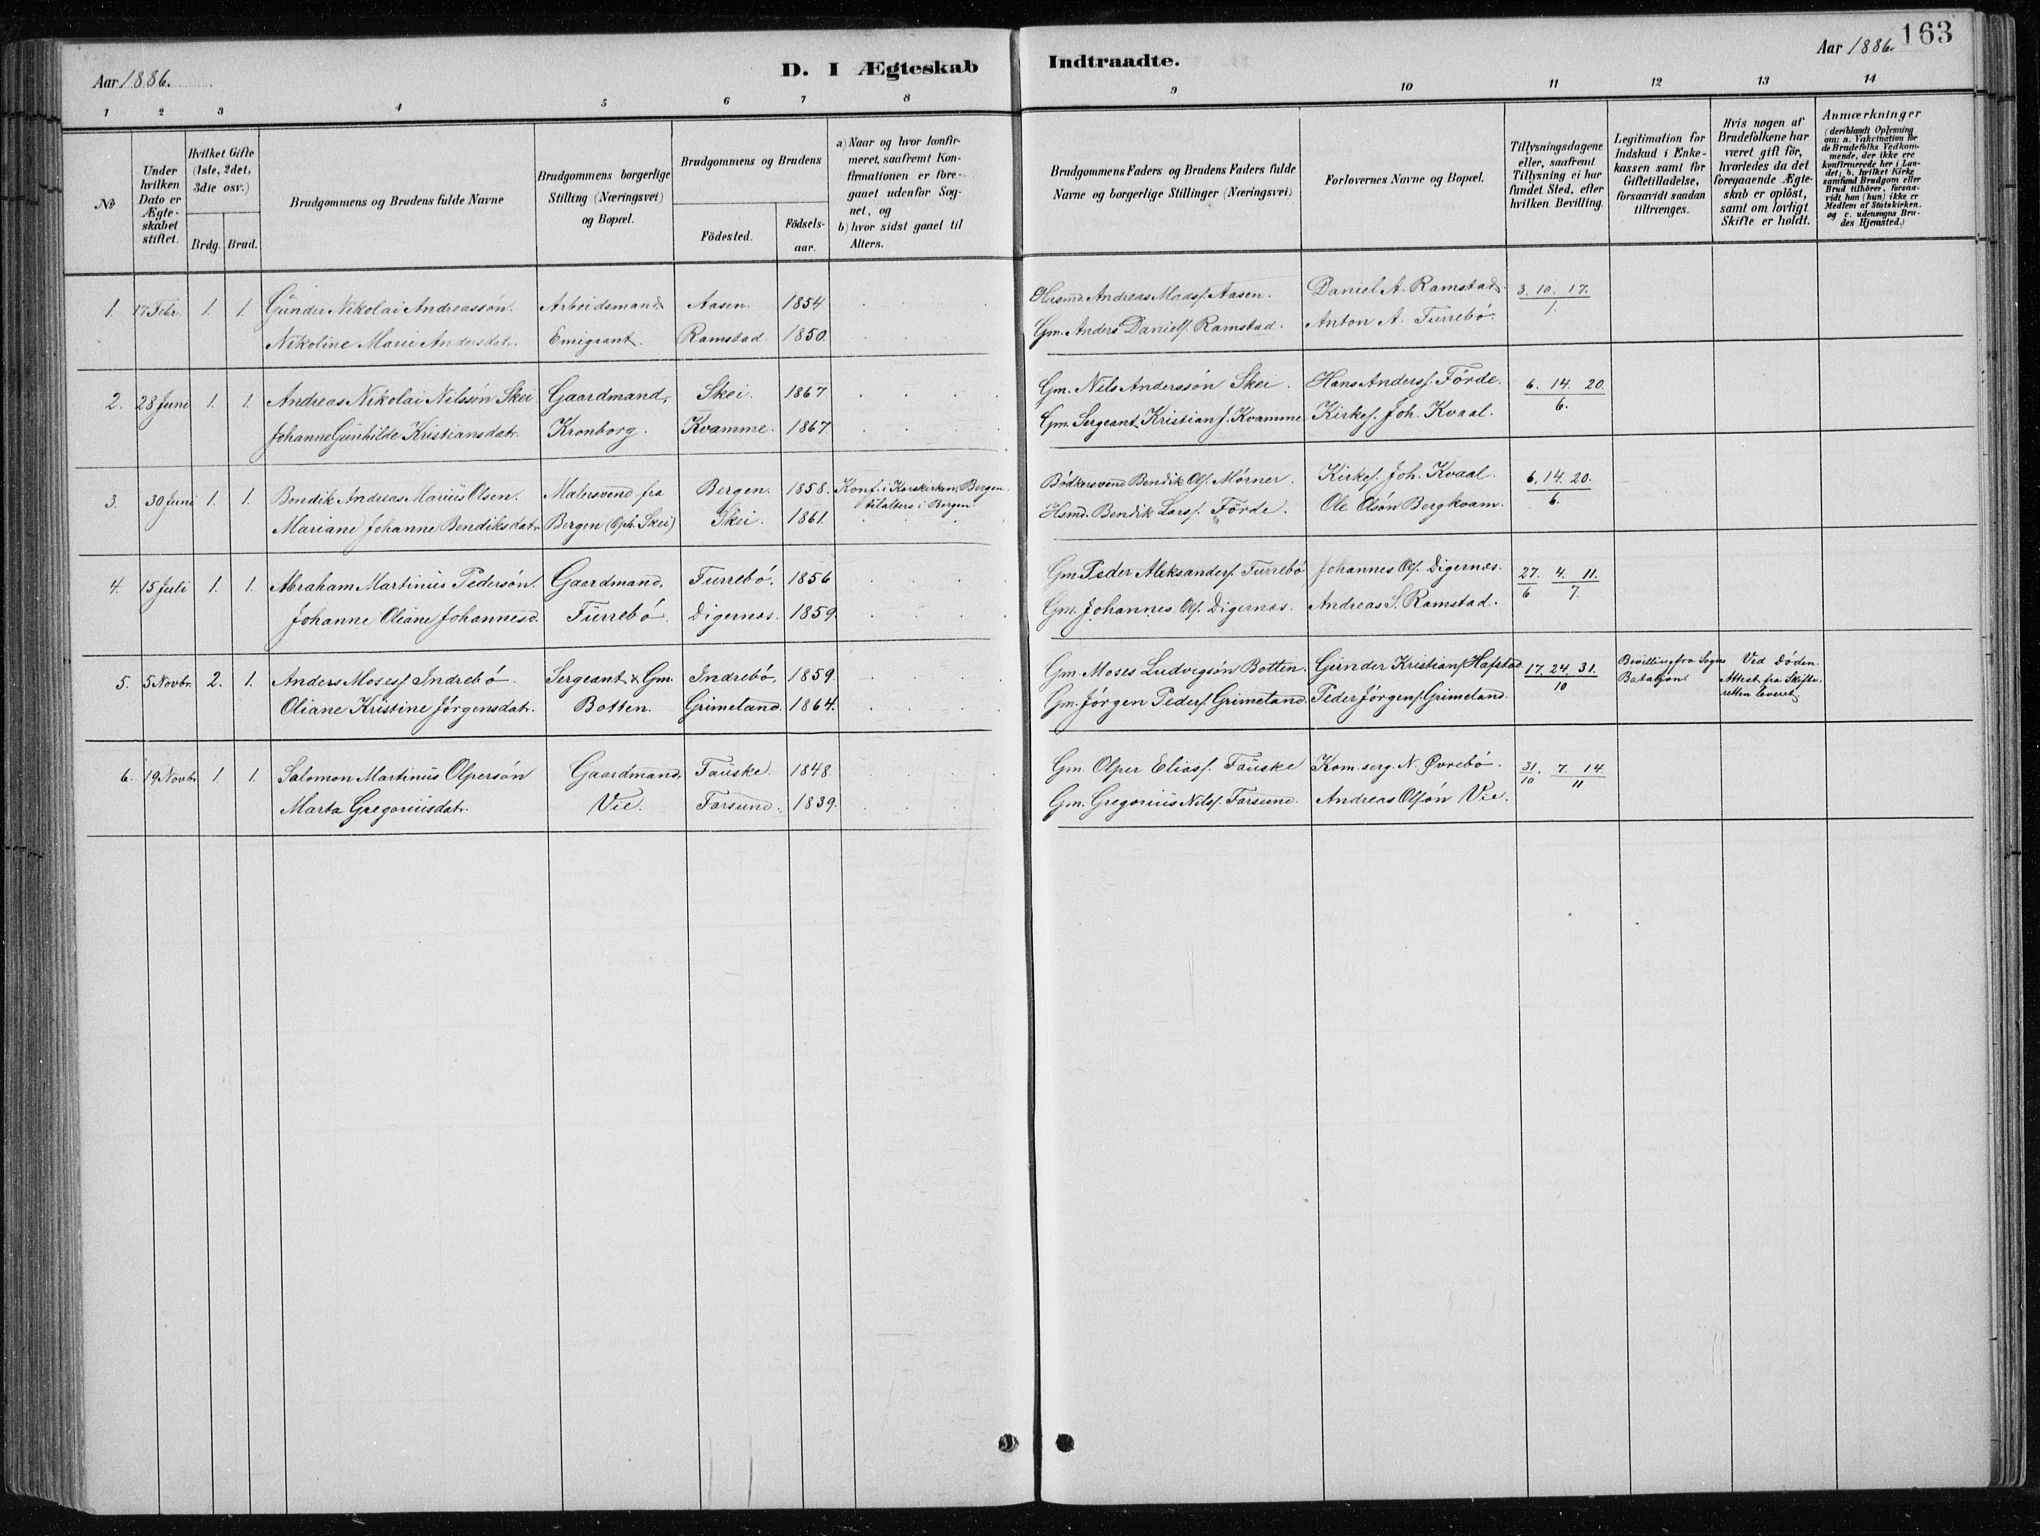 Aar 1886.
D. I Ægteskab
Indtraadte.
Aar 1886.
163
1 2 3 4 5 6 7 8
9 10 11 12 13 14
No
Under hvilken Dato er Ægteskabet stiftet.
Hvilket Gifte (1ste, 2det, 3die osv.)
Brdg. Brud.
Brudgommens og Brudens fulde Navne
Brudgommens borgerlige Stilling (Næringsvei) og Bopæl.
Brudgommens og Brudens
Födested.
Födselsaar.
a) Naar og hvor konfirmeret, saafremt Konfirmationen er foregaaet udenfor Sognet, og
b) hvor sidst gaaet til Alters.
Brudgommens Faders og Brudens Faders fulde Navne og borgerlige Stillinger (Næringsvei)
Forlovernes Navne og Bopæl.
Tillysningsdagene eller, saafremt Tillysning ei har fundet Sted, efter hvilken Bevilling.
Legitimation for Indskud i Enkekassen samt for Giftetilladelse, forsaavidt saadan tiltrænges.
Hvis nogen af Brudefolkene har været gift för, hvorledes da det foregaaende Ægteskab er oplöst, samt om lovligt Skifte er holdt.
Anmærkninger
(deriblandt Oplysning om: a. Vakcination for de Brudefolks Vedkommende, der ikke ere konfirmerede her i Landet; b. hvilket Kirkesamfund Brudgom eller Brud tilhörer, forsaavidt han (hun) ikke er Medlem af Statskirken, og c. udensogns Brudes Hjemsted.)
1. 17 Febr. 1. 1. Gunder Nikolai Andreassön. Arbeidsmand Aasen. 1854 Husmd. Andreas Madss. Aasen. Daniel A. Ramstad. 3. 10. 17.
Nikoline Marie Andersdat. Emigrant. Ramstad 1850. Gm. Anders Daniels. Ramstad. Anton A. Furrebö. 1.
2. 28 Juni 1. 1. Andreas Nikolai Nilssön Skei Gaardmand, Skei. 1867 Gm. Nils Anderssön Skei. Hans Anderss. Förde. 6. 14. 20.
Johanne Gunhilde Kristiansdatr. Kronborg. Kvamme. 1867. Gm. Sergeant Kristian J. Kvamme Kirkes. Joh. Kvaal. 6.
3. 30 Juni 1. 1. Bendik Andreas Marius Olsen. Malersvend fra Bergen. 1858. Konf. i Korskirken, Bergen Bödkersvend Bendik Ols. Mörner. Kirkes. Joh. Kvaal. 6. 14. 20.
Mariane Johanne Bendiksdatr. Bergen (Oph. Skei) Skei. 1861. tilalters i Bergen. Hsmd. Bendik Larss. Förde. Ole Olsön Bergkvam. 6.
4. 15 Juli 1. 1. Abraham Martinus Pedersön. Gaardmand, Furrebö. 1856 Gm. Peder Aleksanders. Furrebö Johannes Ols. Digernæs. 27. 4. 11.
Johanne Oliane Johannesd. Furrebö Digernæs. 1859. Gm. Johannes Ols. Digernæs. Andreas S. Ramstad. 6 7.
5. 5 Novbr. 2. 1. Anders Moses. Indrebö. Sergeant & Gm. Indrebö, 1859. Gm. Moses Ludvigsön Botten. Gunder Kristians. Hafstad 17. 24. 31. Bevilling fra Sogns Ved Döden.
Oliane Kristine Jörgensdatr. Botten. Grimeland. 1864. Gm. Jörgen Peders. Grimeland. Peder Jörgens. Grimeland. 10 Bataljon Attest fra Skifteretten leveret.
6. 19 Novbr 1. 1. Salomon Martinus Olpersön Gaardmand. Fauske. 1848. Gm. Olper Eliass. Fauske Kom.serg. N. Øvrebö. 31 7. 14.
Marta Gregoriusdat. Vie. Farsund. 1839. Gm. Gregorius Nilss. Farsund. Andreas Olsön Vie. 10 11